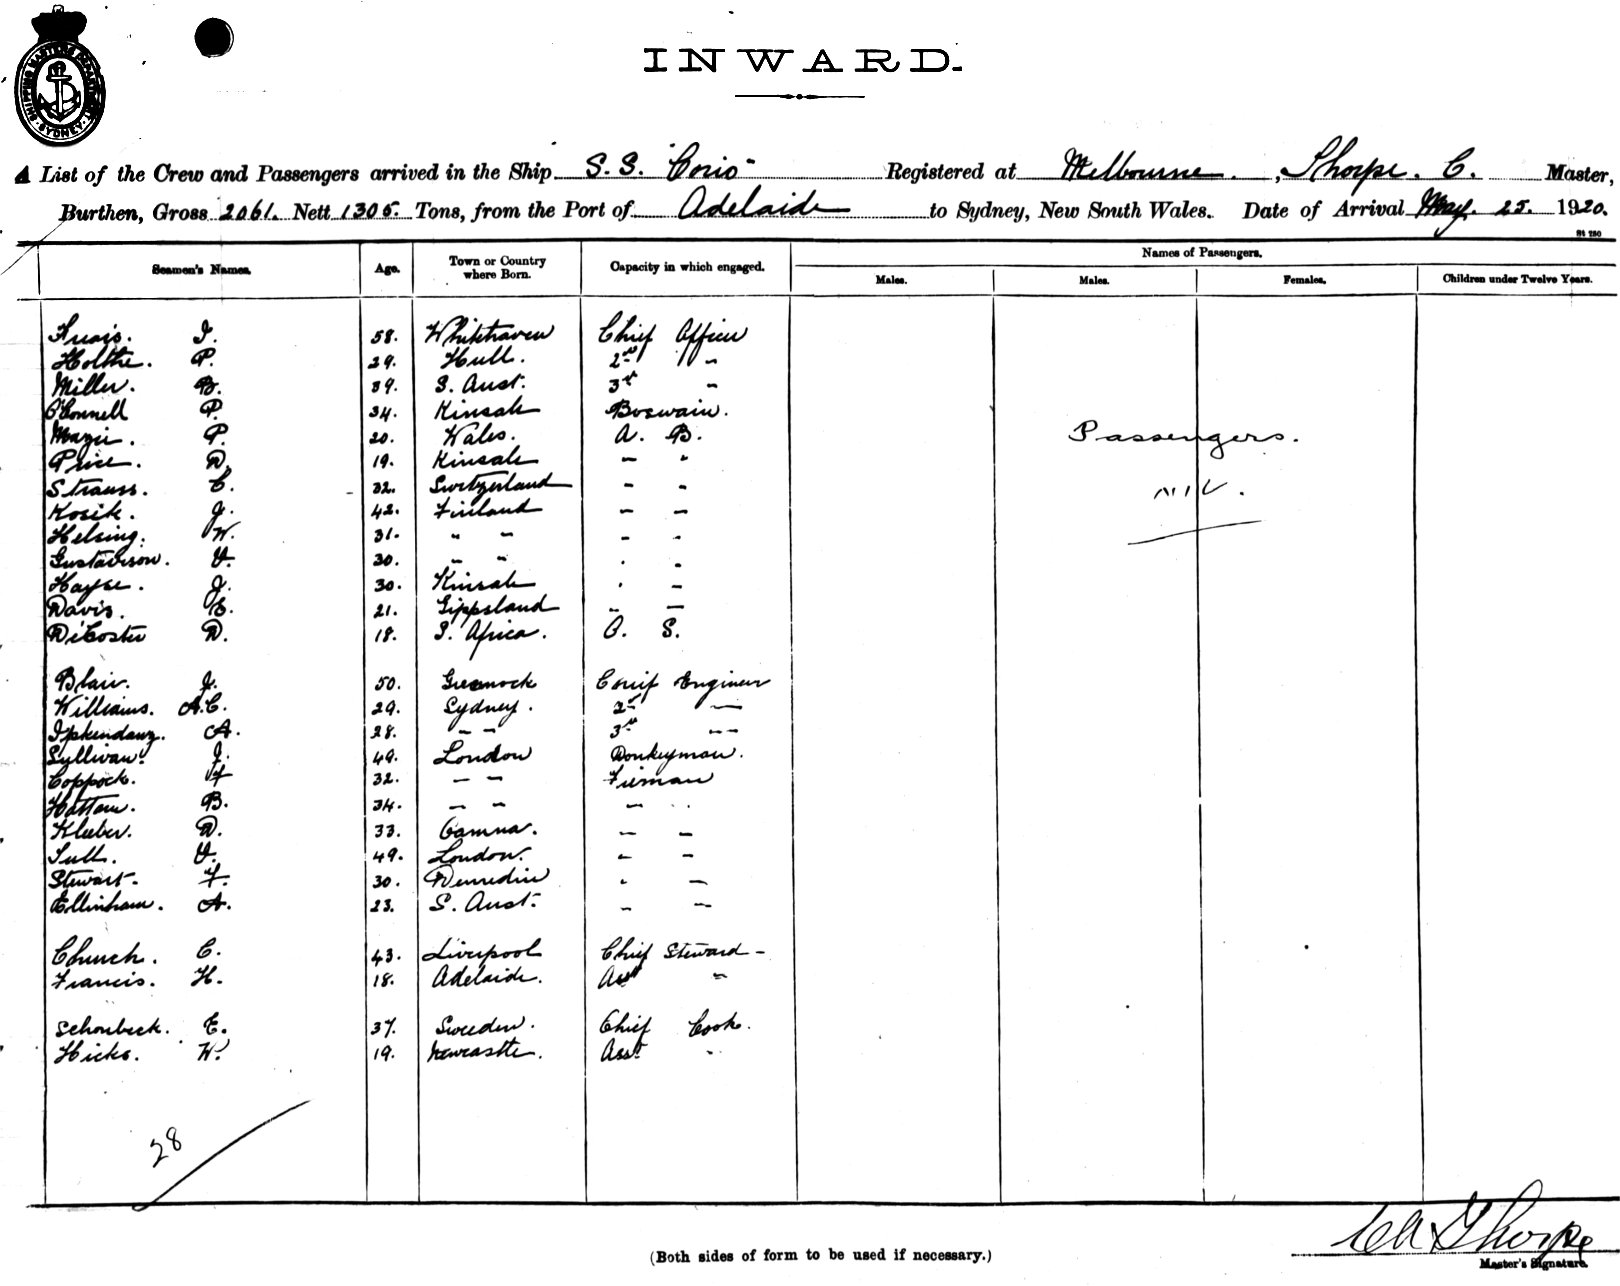 SHIPPING MASTERS DEPARTMENT · SYDNEY ·
INWARD.
A List of the Crew and Passengers arrived in the Ship S.S. "Corio" Registered at Melbourne, Thorpe. C. Master,
Burthen, Gross 2061. Nett 1305. Tons, from the Port of Adelaide to Sydney, New South Wales. Date of Arrival May. 25. 1920.
Seamen's Names. Age. Town or Country where Born. Capacity in which engaged. Names of Passengers.
Males. Males. Females. Children under Twelve Years.
J. 58. Whitehaven Chief Officer
Holthe. P. 29. Hull. 2nd "
Miller. B. 39. S. Aust. 3rd "
O'Connell P. 34. Kinsale Boswain.
P. 20. Wales. A. B. Passengers.
Price. D. 19. Kinsale " "
Strauss. C. 32. Switzerland " " NIL.
Kosik. J. 42. Finland " "
Helsing. W. 31. " " " "
Gustavison. V. 30. " " " "
Hayse. J. 30. Kinsale " "
Davis. C. 21. Gippsland " "
DeCoster D. 18. S. Africa. O. S.
Blair. J. 50. Greenock Chief Engineer
Williams. A.C. 29. Sydney. 2nd "
Ipkendanz. A. 28. " " 3rd "
Sullivan. J. 49. London Donkeyman.
Coppock. F 32. " " Fireman
Hattam. B. 34. " " " "
Kluber. D. 33. " "
V. 49. London. " "
Stewart. F. 30. Dunedin " "
Ellinham. A. 23. S. Aust. " "
Church. C. 43. Liverpool Chief Steward
Francis. H. 18. Adelaide. Asst "
Schonbeck. E. 37. Sweden. Chief Cook.
Hicks. W. 19. Newcastle. Asst "
28
(Both sides of form to be used if necessary.)
CA Thorpe
Master's Signature.